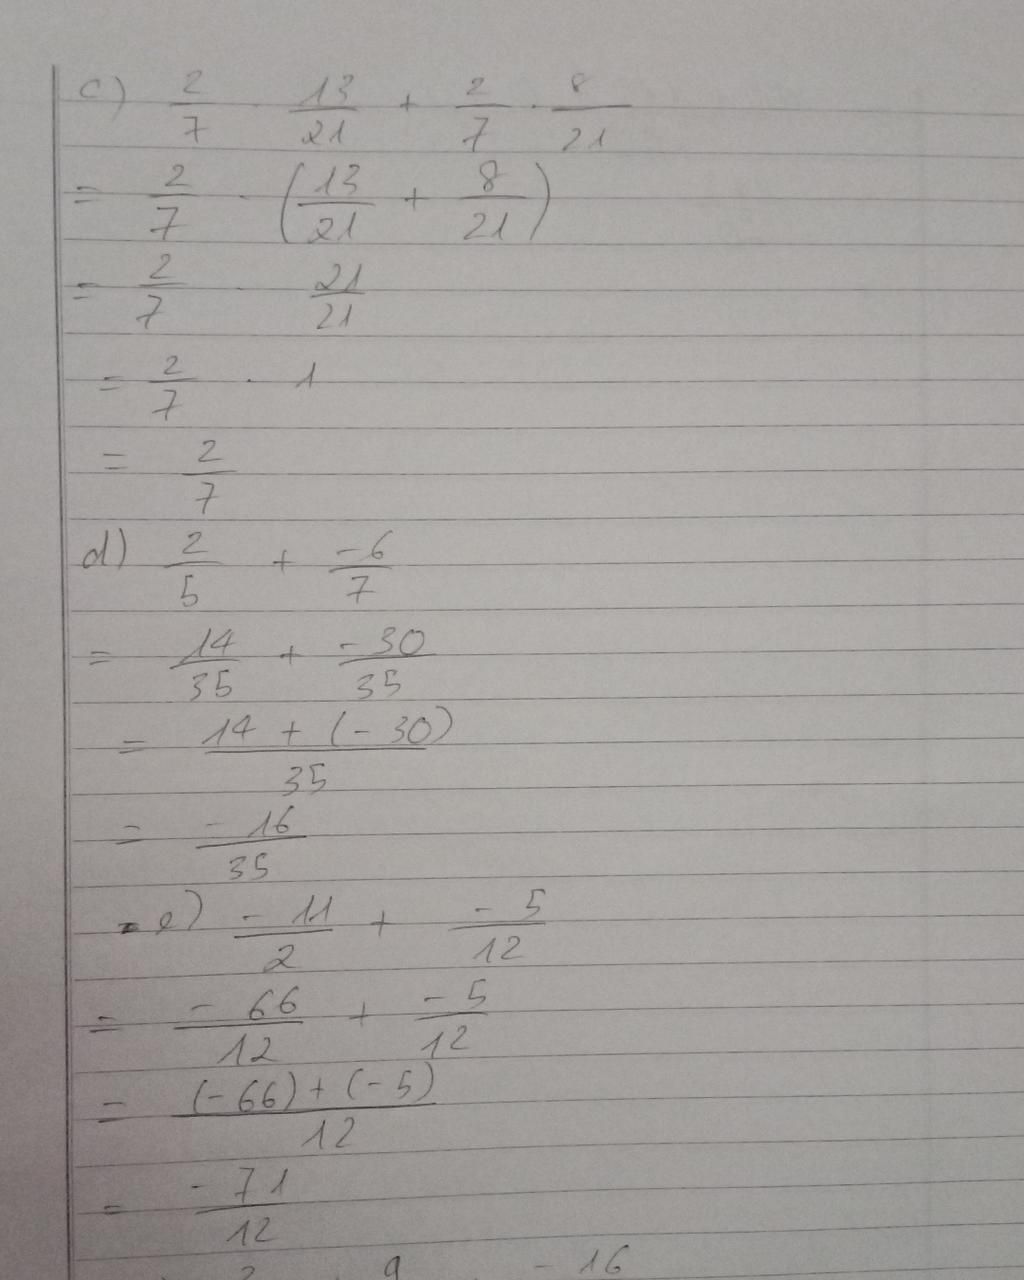 c) 2/7 · 13/21 + 2/7 · 8/21
= 2/7 · (13/21 + 8/21)
= 2/7 · 21/21
= 2/7 · 1
= 2/7
d) 2/5 + -6/7
= 14/35 + -30/35
= 14 + (-30)/35
= -16/35
e) -11/2 + -5/12
= -66/12 + -5/12
= (-66) + (-5)/12
= -71/12
9 -16